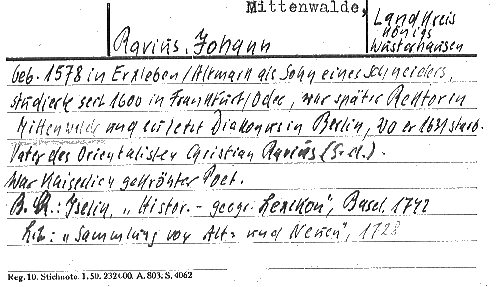 Mittenwalde,
Landkreis
Königs
Wusterhausen
Ravius, Johann
geb. 1578 in Erxleben/Altmark als Sohn eines Schneiders,
studierte seit 1600 in Frankfurt/Oder, war später Rektor in
Mittenwalde und zuletzt Diakonus in Berlin, wo er 1631 starb.
Vater des Orientalisten Christian Ravius (s.d.).
War Kaiserlich gekrönter Poet.
Iselin, „Histor.- geogr. Lexikon", Basel 1742
Lit: „Sammlung von Alt- und Neuen", 1728
Reg. 10. Stichnote. 1. 50. 232400. A. 803. S. 4062